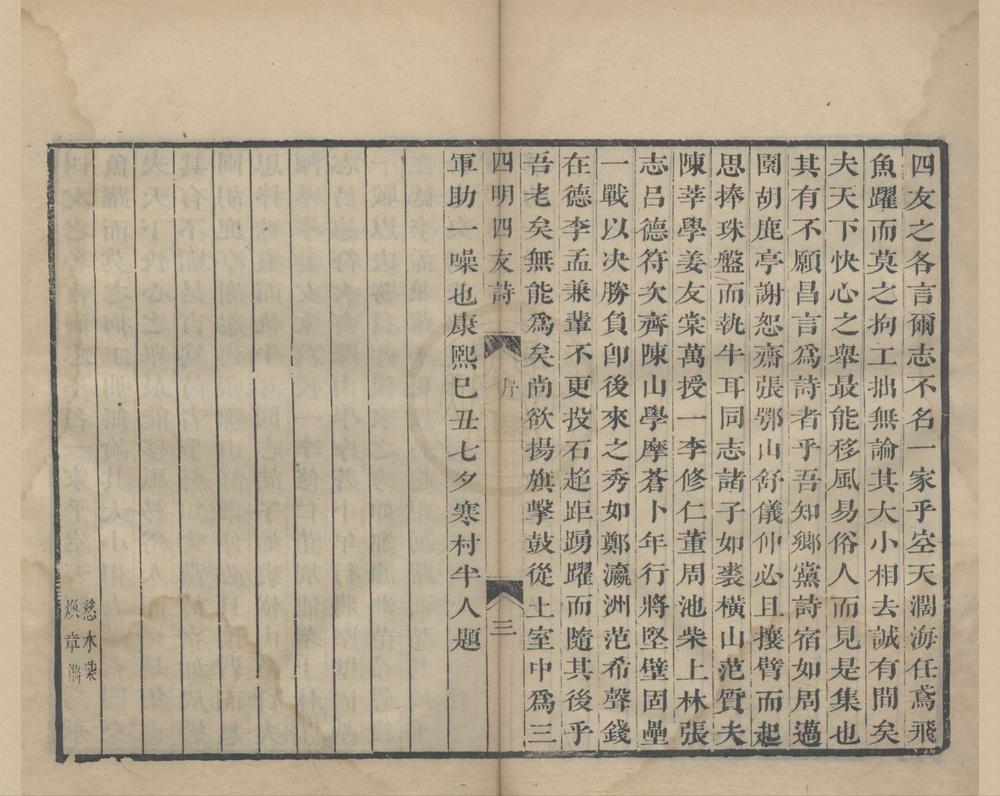 四友之各言爾志不名一家乎空天濶海任鳶飛
魚躍而莫之拘工拙無論其大小相去誠有間矣
夫天下快心之舉最能移風易俗人而見是集也
其有不願昌言爲詩者乎吾知鄉黨詩宿如周邁
園胡鹿亭謝恕齋張鄂山舒儀仲必且攘臂而起
思捧珠盤而執牛耳同志諸子如裘橫山范質夫
陳莘學姜友棠萬授一李修仁董周池柴上林張
志呂德符㳄齊陳山學摩蒼卜年行將堅壁固壘
一戰以決勝負卽後來之秀如鄭瀛洲范希聲錢
在德李孟兼輩不更投石趂距踴躍而隨其後乎
吾老矣無能爲矣尚欲揚旗擊鼓從土室中爲三
四明四友詩 序 三
軍助一噪也康熙巳丑七夕寒村半人題
慈水柴
煥章鐫